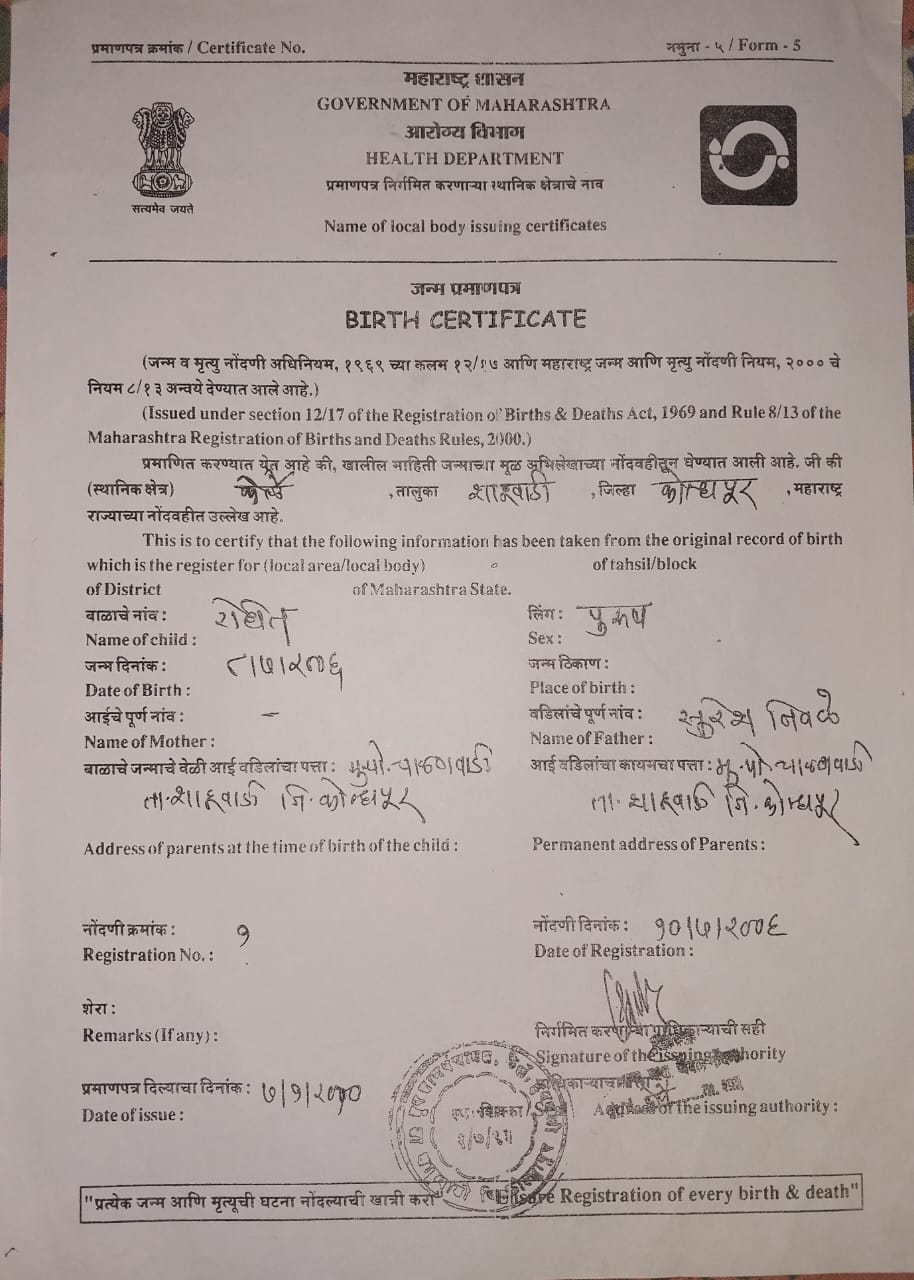 प्रमाणपत्र क्रमांक / Certificate No. नमुना - ५ / Form - 5
महाराष्ट्र शासन
GOVERNMENT OF MAHARASHTRA
आरोग्य विभाग
HEALTH DEPARTMENT
प्रमाणपत्र निर्गमित करणाऱ्या स्थानिक क्षेत्राचे नाव
सत्यमेव जयते
Name of local body issuing certificates
जन्म प्रमाणपत्र
BIRTH CERTIFICATE
(जन्म व मृत्यु नोंदणी अधिनियम, १९६९ च्या कलम १२/१७ आणि महाराष्ट्र जन्म आणि मृत्यु नोंदणी नियम, २००० चे
नियम ८/१३ अन्वये देण्यात आले आहे.)
(Issued under section 12/17 of the Registration of Births & Deaths Act, 1969 and Rule 8/13 of the
Maharashtra Registration of Births and Deaths Rules, 2000.)
प्रमाणित करण्यात येत आहे की, खालील माहिती जन्माच्या मूळ अभिलेखाच्या नोंदवहीतून घेण्यात आली आहे. जी की
(स्थानिक क्षेत्र) , तालुका शाहूवाडी , जिल्हा कोल्हापूर , महाराष्ट्र
राज्याच्या नोंदवहीत उल्लेख आहे.
This is to certify that the following information has been taken from the original record of birth
which is the register for (local area/local body) of tahsil/block
of District of Maharashtra State.
बाळाचे नांव : रोहित लिंग : पुरुष
Name of child : Sex :
जन्म दिनांक : ८/७/२००६ जन्म ठिकाण :
Date of Birth : Place of birth :
आईचे पूर्ण नांव : - वडिलांचे पूर्ण नांव : सुरेश निवळे
Name of Mother : Name of Father :
बाळाचे जन्माचे वेळी आई वडिलांचा पत्ता : मु.पो. आई वडिलांचा कायमचा पत्ता : मु.पो.
ता. शाहूवाडी जि. कोल्हापूर ता. शाहूवाडी जि. कोल्हापूर
Address of parents at the time of birth of the child : Permanent address of Parents :
नोंदणी क्रमांक : १ नोंदणी दिनांक : १०/७/२००६
Registration No. : Date of Registration :
शेरा :
Remarks (If any) : निर्गमित करणाऱ्या प्राधिकाऱ्याची सही
Signature of the issuing authority
प्रमाणपत्र दिल्याचा दिनांक : ७/१/२०१०
Date of issue : Address of the issuing authority :
"प्रत्येक जन्म आणि मृत्यूची घटना नोंदल्याची खात्री करा" Ensure Registration of every birth & death"